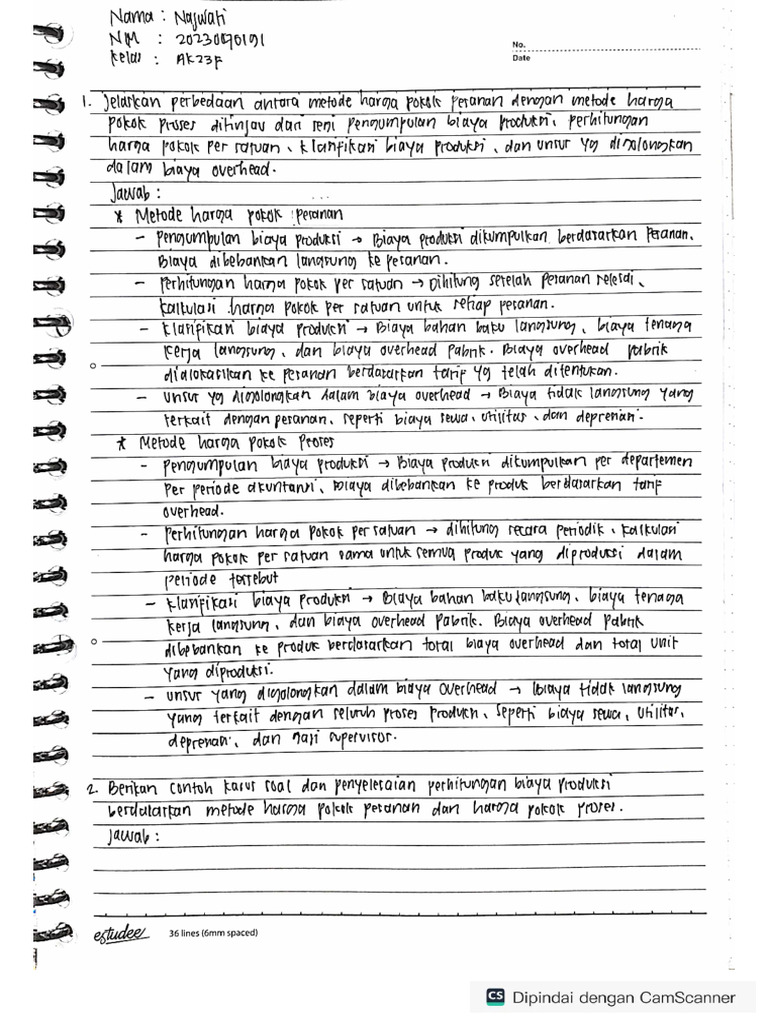 Nama : Najwati
NIM : 20230070191
Kelas : AK23F
No.
Date
1. Jelaskan perbedaan antara metode harga pokok pesanan dengan metode harga
pokok proses ditinjau dari segi pengumpulan biaya produksi, perhitungan
harga pokok per satuan, klasifikasi biaya produksi, dan unsur yg digolongkan
dalam biaya overhead.
Jawab :
* Metode harga pokok pesanan
- Pengumpulan biaya produksi → Biaya produksi dikumpulkan berdasarkan Pesanan.
Biaya dibebankan langsung ke pesanan.
- Perhitungan harga pokok per satuan → Dihitung setelah pesanan selesai,
kalkulasi harga pokok per satuan untuk setiap pesanan.
- Klasifikasi biaya produksi → Biaya bahan baku langsung, biaya tenaga
kerja langsung, dan biaya overhead Pabrik. Biaya overhead pabrik
dialokasikan ke pesanan berdasarkan tarif yg telah ditentukan.
- Unsur yg digolongkan dalam biaya overhead → Biaya tidak langsung yang
terkait dengan pesanan, seperti biaya sewa, utilitas, dan depresiasi.
* Metode harga pokok Proses
- Pengumpulan biaya produksi → Biaya produksi dikumpulkan per departemen
Per periode akuntansi, Biaya dibebankan ke produk berdasarkan tarif
overhead.
- Perhitungan harga pokok per satuan → dihitung secara periodik, kalkulasi
harga pokok per satuan sama untuk semua produk yang diproduksi dalam
periode tersebut
- Klasifikasi biaya produksi → Biaya bahan baku langsung, biaya tenaga
kerja langsung, dan biaya overhead pabrik. Biaya overhead pabrik
dibebankan ke produk berdasarkan total biaya overhead dan total unit
yang diproduksi.
- unsur yang digolongkan dalam biaya overhead → Biaya tidak langsung
yang terkait dengan seluruh proses produksi, seperti biaya sewa, utilitas,
depresiasi, dan gaji supervisor.
2. Berikan contoh kasus soal dan penyelesaian perhitungan biaya produksi
berdasarkan metode harga pokok pesanan dan harga pokok proses.
Jawab :
estudee 36 lines (6mm spaced)
CS Dipindai dengan CamScanner